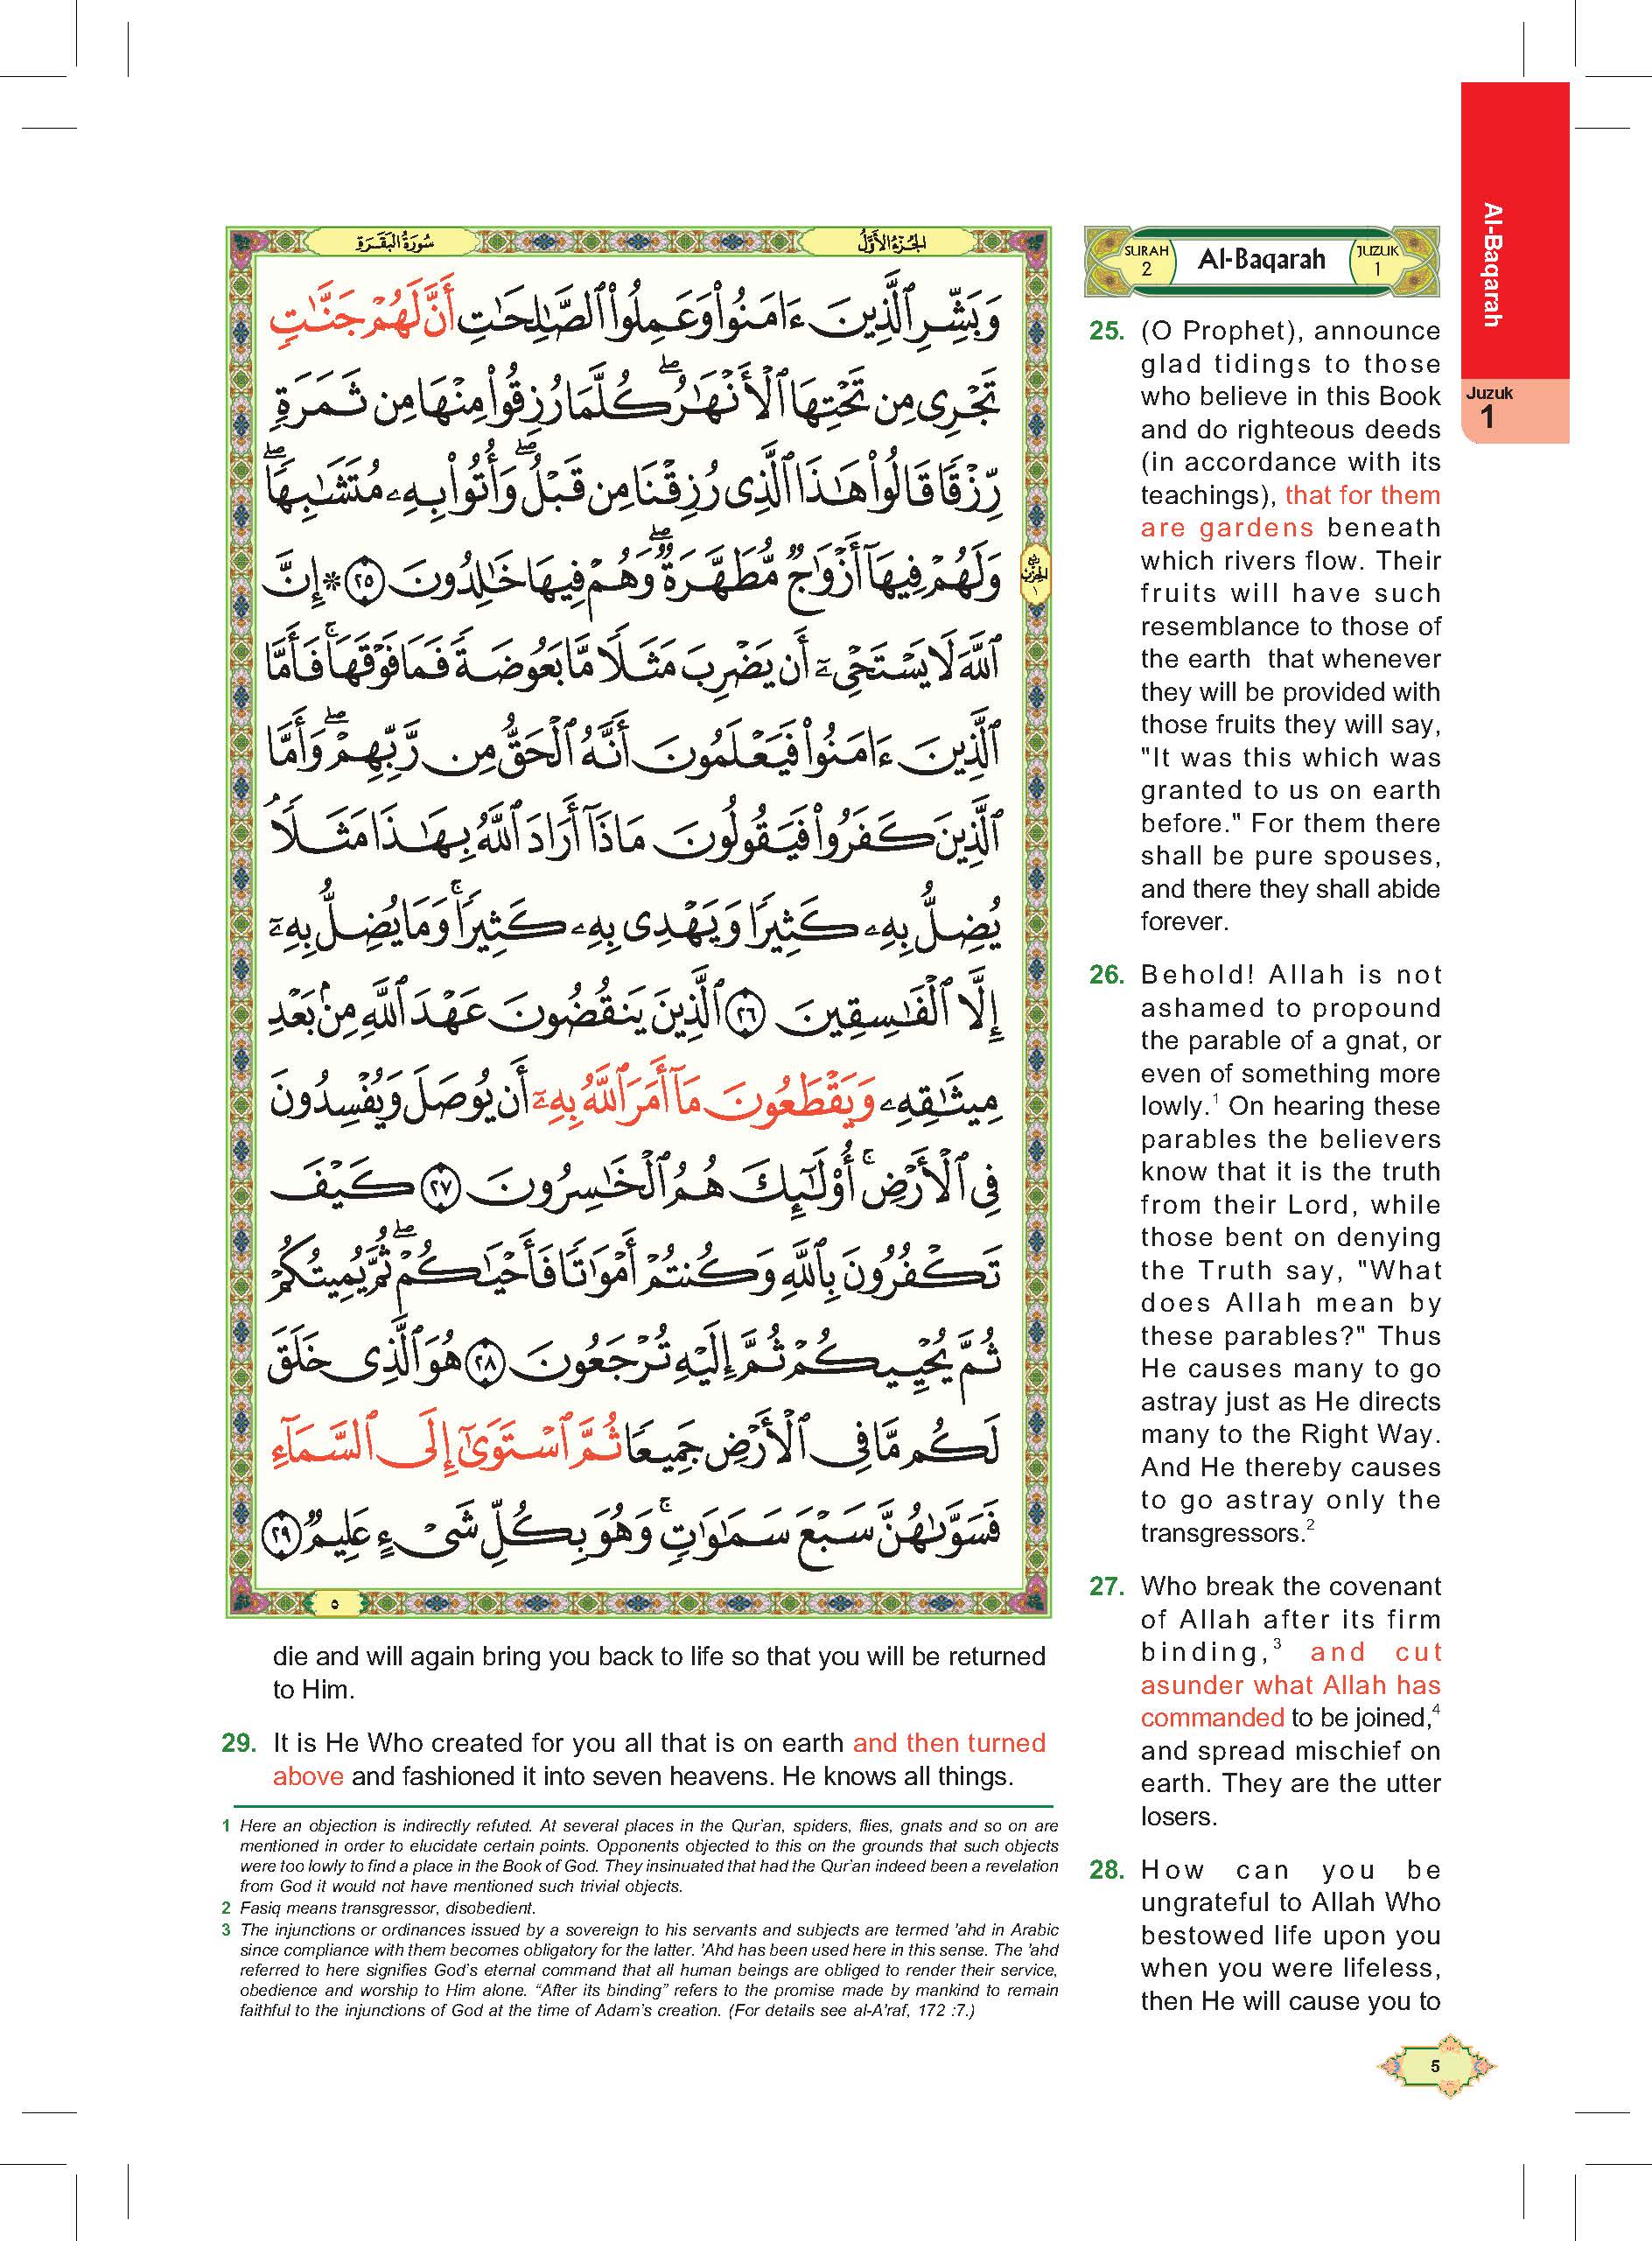 سُورَةُ البَقَرَةِ
الجُزْءُ الأَوَّلُ
وَبَشِّرِ ٱلَّذِينَ ءَامَنُوا۟ وَعَمِلُوا۟ ٱلصَّٰلِحَٰتِ أَنَّ لَهُمْ جَنَّٰتٍ
تَجْرِى مِن تَحْتِهَا ٱلْأَنْهَٰرُ ۖ كُلَّمَا رُزِقُوا۟ مِنْهَا مِن ثَمَرَةٍ
رِّزْقًا قَالُوا۟ هَٰذَا ٱلَّذِى رُزِقْنَا مِن قَبْلُ ۖ وَأُتُوا۟ بِهِۦ مُتَشَٰبِهًا ۖ
وَلَهُمْ فِيهَآ أَزْوَٰجٌ مُّطَهَّرَةٌ ۖ وَهُمْ فِيهَا خَٰلِدُونَ ٢٥ * إِنَّ
ربع الحزب ١
ٱللَّهَ لَا يَسْتَحْىِۦٓ أَن يَضْرِبَ مَثَلًا مَّا بَعُوضَةً فَمَا فَوْقَهَا ۚ فَأَمَّا
ٱلَّذِينَ ءَامَنُوا۟ فَيَعْلَمُونَ أَنَّهُ ٱلْحَقُّ مِن رَّبِّهِمْ ۖ وَأَمَّا
ٱلَّذِينَ كَفَرُوا۟ فَيَقُولُونَ مَاذَآ أَرَادَ ٱللَّهُ بِهَٰذَا مَثَلًا ۘ
يُضِلُّ بِهِۦ كَثِيرًا وَيَهْدِى بِهِۦ كَثِيرًا ۚ وَمَا يُضِلُّ بِهِۦٓ
إِلَّا ٱلْفَٰسِقِينَ ٢٦ ٱلَّذِينَ يَنقُضُونَ عَهْدَ ٱللَّهِ مِنۢ بَعْدِ
مِيثَٰقِهِۦ وَيَقْطَعُونَ مَآ أَمَرَ ٱللَّهُ بِهِۦٓ أَن يُوصَلَ وَيُفْسِدُونَ
فِى ٱلْأَرْضِ ۚ أُو۟لَٰٓئِكَ هُمُ ٱلْخَٰسِرُونَ ٢٧ كَيْفَ
تَكْفُرُونَ بِٱللَّهِ وَكُنتُمْ أَمْوَٰتًا فَأَحْيَٰكُمْ ۖ ثُمَّ يُمِيتُكُمْ
ثُمَّ يُحْيِيكُمْ ثُمَّ إِلَيْهِ تُرْجَعُونَ ٢٨ هُوَ ٱلَّذِى خَلَقَ
لَكُم مَّا فِى ٱلْأَرْضِ جَمِيعًا ثُمَّ ٱسْتَوَىٰٓ إِلَى ٱلسَّمَآءِ
فَسَوَّىٰهُنَّ سَبْعَ سَمَٰوَٰتٍ ۚ وَهُوَ بِكُلِّ شَىْءٍ عَلِيمٌ ٢٩
٥
SURAH 2
Al-Baqarah
JUZUK 1
Al-Baqarah
Juzuk
1
25. (O Prophet), announce
glad tidings to those
who believe in this Book
and do righteous deeds
(in accordance with its
teachings), that for them
are gardens beneath
which rivers flow. Their
fruits will have such
resemblance to those of
the earth that whenever
they will be provided with
those fruits they will say,
"It was this which was
granted to us on earth
before." For them there
shall be pure spouses,
and there they shall abide
forever.
26. Behold! Allah is not
ashamed to propound
the parable of a gnat, or
even of something more
lowly.1 On hearing these
parables the believers
know that it is the truth
from their Lord, while
those bent on denying
the Truth say, "What
does Allah mean by
these parables?" Thus
He causes many to go
astray just as He directs
many to the Right Way.
And He thereby causes
to go astray only the
transgressors.2
27. Who break the covenant
of Allah after its firm
binding,3 and cut
asunder what Allah has
commanded to be joined,4
and spread mischief on
earth. They are the utter
losers.
28. How can you be
ungrateful to Allah Who
bestowed life upon you
when you were lifeless,
then He will cause you to
die and will again bring you back to life so that you will be returned
to Him.
29. It is He Who created for you all that is on earth and then turned
above and fashioned it into seven heavens. He knows all things.
1 Here an objection is indirectly refuted. At several places in the Qur'an, spiders, flies, gnats and so on are
mentioned in order to elucidate certain points. Opponents objected to this on the grounds that such objects
were too lowly to find a place in the Book of God. They insinuated that had the Qur'an indeed been a revelation
from God it would not have mentioned such trivial objects.
2 Fasiq means transgressor, disobedient.
3 The injunctions or ordinances issued by a sovereign to his servants and subjects are termed 'ahd in Arabic
since compliance with them becomes obligatory for the latter. 'Ahd has been used here in this sense. The 'ahd
referred to here signifies God's eternal command that all human beings are obliged to render their service,
obedience and worship to Him alone. “After its binding” refers to the promise made by mankind to remain
faithful to the injunctions of God at the time of Adam's creation. (For details see al-A'raf, 172 :7.)
5